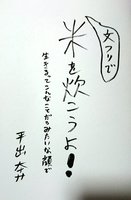 文フリで
米を炊こうよ!
生きるってこんなことだろみたいな顔で
平出奔